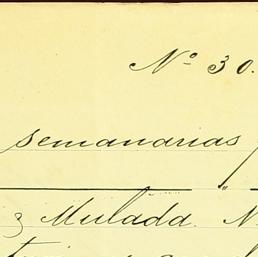 Nº 30.
semanarias
z Mulada. N